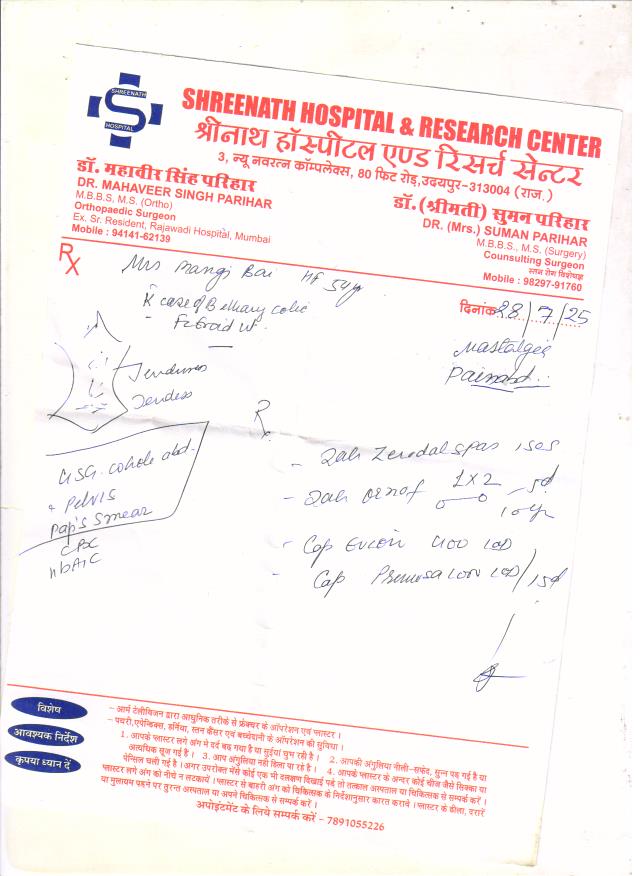 SHREENATH
HOSPITAL
SHREENATH HOSPITAL & RESEARCH CENTER
श्रीनाथ हॉस्पीटल एण्ड रिसर्च सेन्टर
3, न्यू नवरत्न कॉम्पलेक्स, 80 फिट रोड़, उदयपुर-313004 (राज.)
डॉ. महावीर सिंह परिहार
DR. MAHAVEER SINGH PARIHAR
M.B.B.S, M.S. (Ortho)
Orthopaedic Surgeon
Ex. Sr. Resident, Rajawadi Hospital, Mumbai
Mobile : 94141-62139
डॉ. (श्रीमती) सुमन परिहार
DR. (Mrs.) SUMAN PARIHAR
M.B.B.S., M.S. (Surgery)
Counsulting Surgeon
स्तन रोग विशेषज्ञ
Mobile : 98297-91760
Rx
Mrs Mangi Bai
K case of Billiary colic
- Febroid ut.
दिनांक 28/7/25
Mastalgia
Pain abd..
Tenderness
Rx
USG. whole abd.
+ Pelvis
Pap's Smear
CBC
HbA1C
- Tab Zerodal spas
- Tab ornof 1 x 2 5d
- Cap Evion 400 1 OD
- Cap Primosa 1000 1 OD / 15d
विशेष
आवश्यक निर्देश
कृपया ध्यान दें
– आर्म टेलीविजन द्वारा आधुनिक तरीके से फ्रेक्चर के ऑपरेशन एवं प्लास्टर ।
– पथरी, एपेन्डिक्स, हर्निया, स्तन कैंसर एवं बच्चेदानी के ऑपरेशन की सुविधा ।
1. आपके प्लास्टर लगे अंग में दर्द बढ़ गया है या सुईयां चुभ रही है । 2. आपकी अंगुलिया नीली-सफेद, सुन्न पड़ गई है या
अत्यधिक सूज गई है । 3. आप अंगुलियां नही हिला पा रहे है । 4. आपके प्लास्टर के अन्दर कोई चीज जैसे सिक्का या
पेन्सिल चली गई है । अगर उपरोक्त मेंसे कोई एक भी लक्षण दिखाई पड़े तो तत्काल अस्पताल या चिकित्सक से सम्पर्क करें ।
प्लास्टर लगे अंग को नीचे न लटकायें । प्लास्टर से बाहरी अंग को चिकित्सक के निर्देशानुसार कसरत करावे । प्लास्टर के ढीला, दरारें
या मुलायम पड़ने पर तुरन्त अस्पताल या अपने चिकित्सक से सम्पर्क करें ।
अपोइंटमेंट के लिये सम्पर्क करें - 7891055226